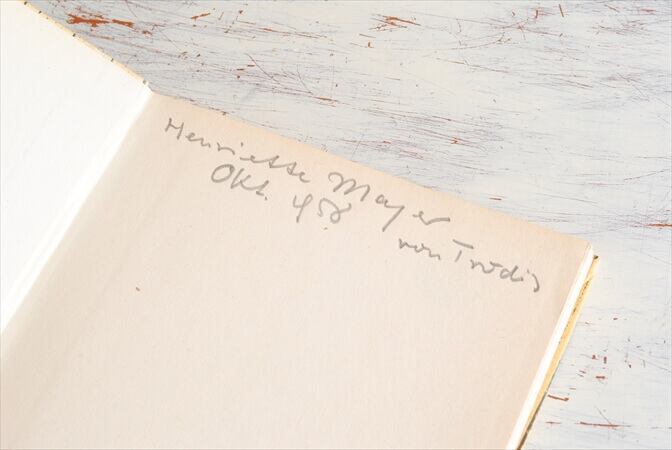 Henriette Mayer
Okt. 458 von Trudis